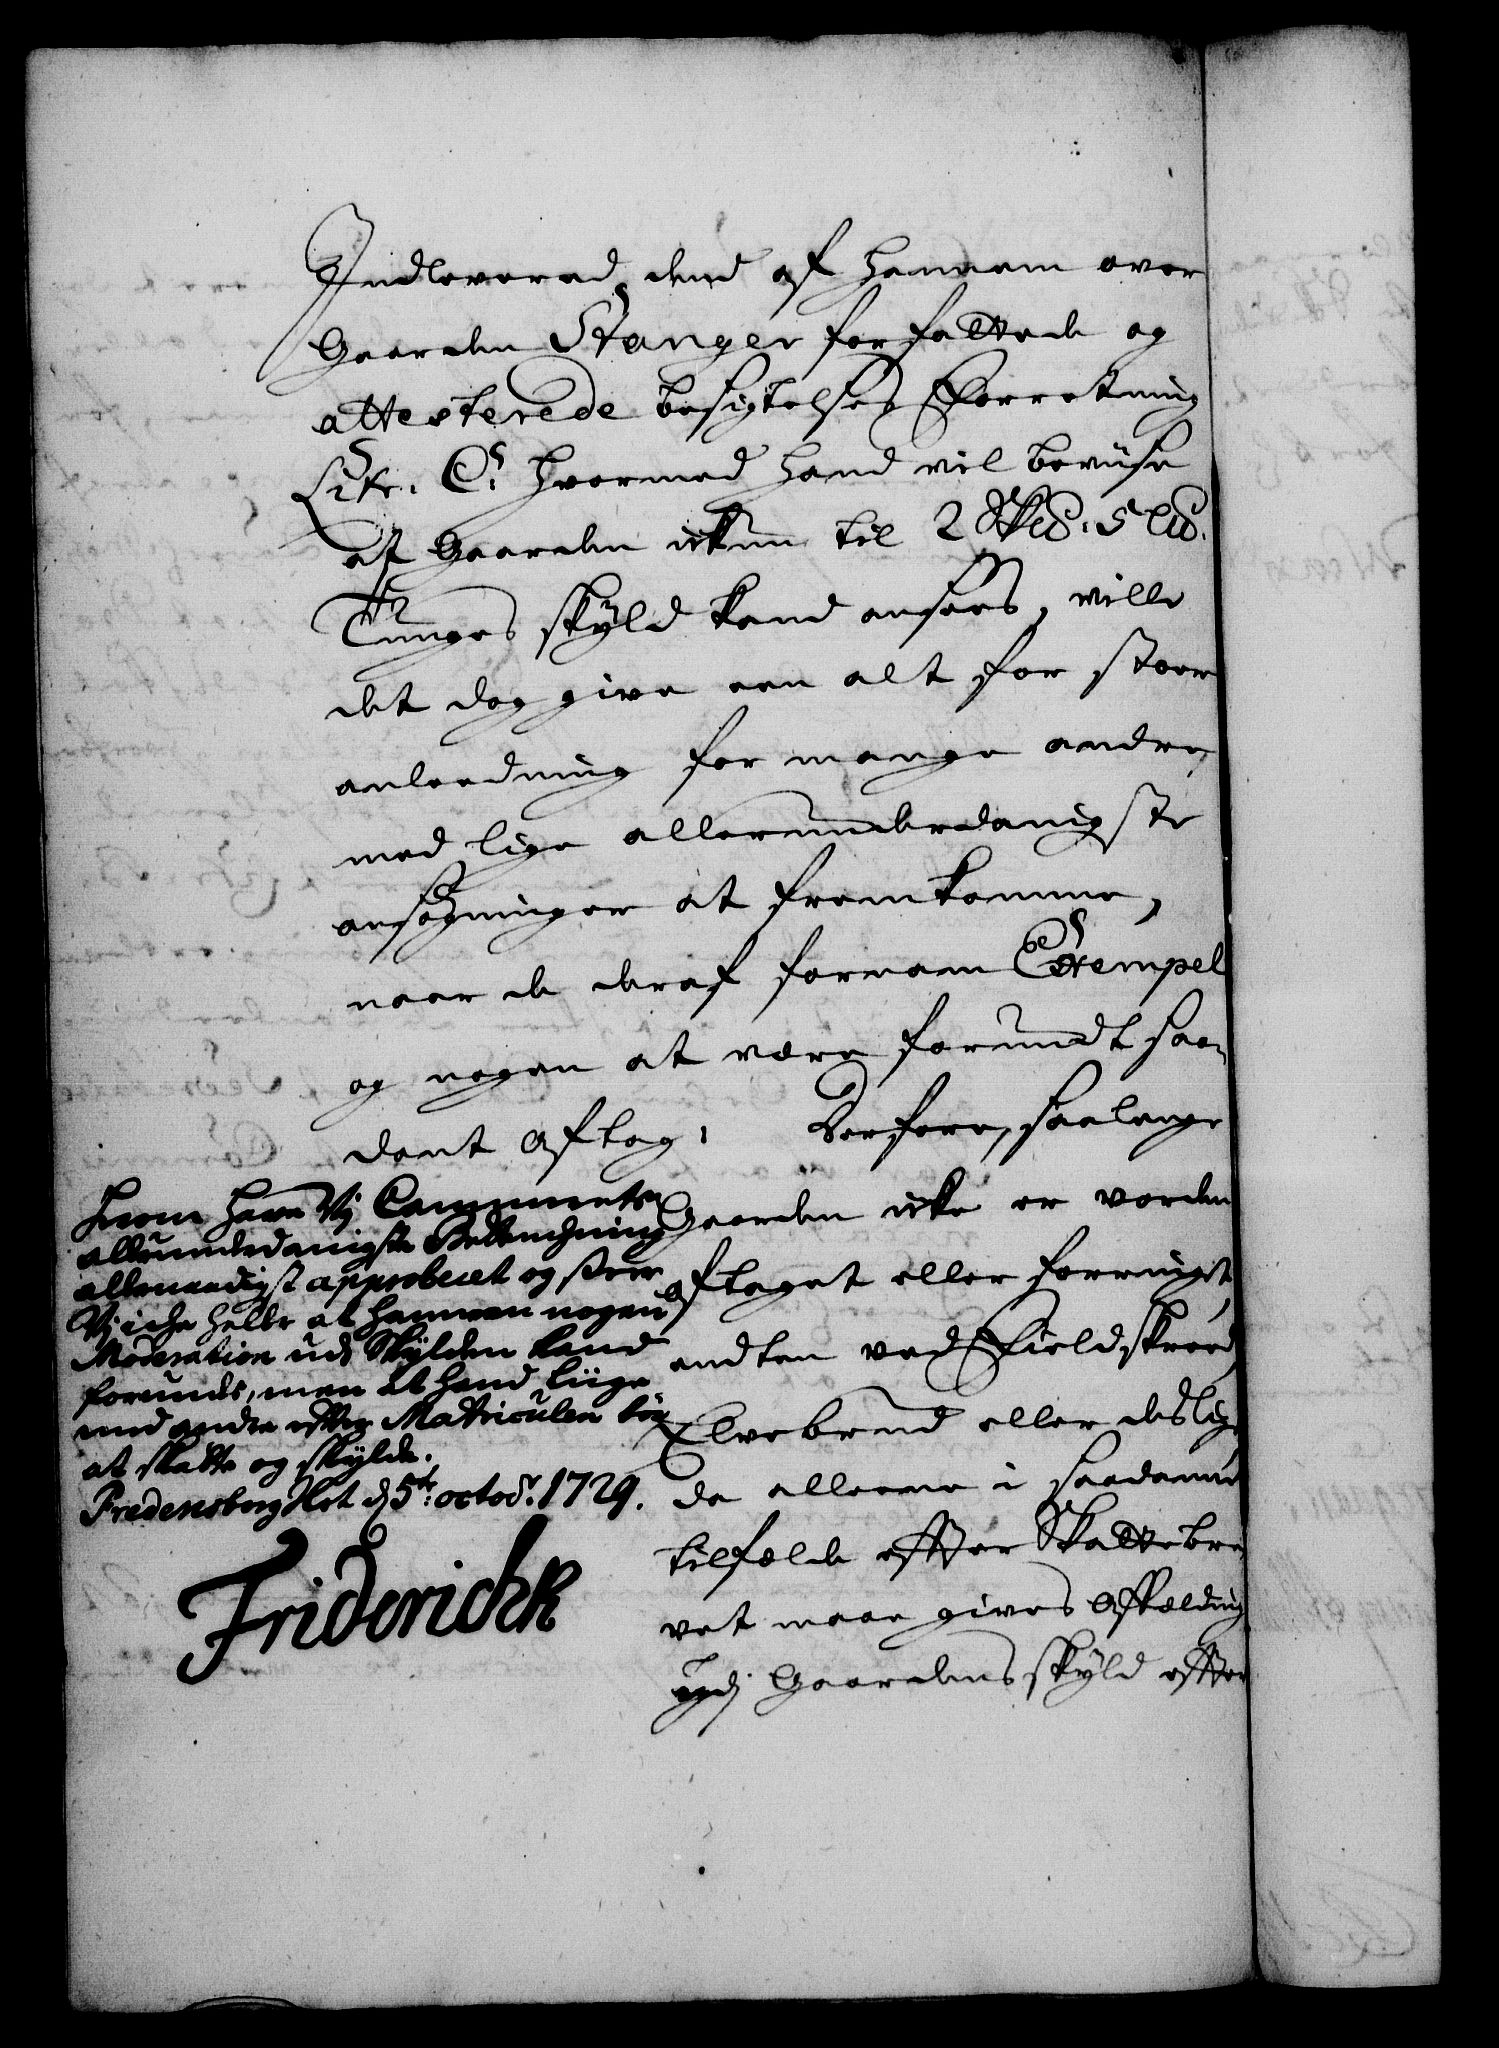 Indlevered, dend af hannem over
Gaarden Stanger forfattede og
attesterede besigtelses Forretning
Litr. C: hvormed hand vil beviise
at Gaarden ickun til 2 Sk℔. 5 L℔.
Tunges skyld kand ansees, ville
det dog give een alt for stoor
anleedning for mange andre,
med lige allerunderdanigste
ansøgninger at fremkomme,
naar de deraf fornam Exempel
og nogen at være forundt saa-
dant Aftag: Derfore, saalenge
Gaarden icke er vorden
aftaget eller forringet,
endten ved Fieldskreed,
Elvebrud eller deslige
da alleene i saadanne
tilfælde efter Skattebre
vet maae gives Afkælding
udj Gaardens skyld efter
hvorn have Vj Cammerets
allerunderdanigste Betenchning
allernaadigst approberet og seer
Vj iche heller at hannem nogen
Moderation udj Skylden kand
forundes, men at hand liige
med andre efter Matriculen bør
at skatte og skylde.
Fredensborg Slot d 5te octobr. 1729.
Friderich R